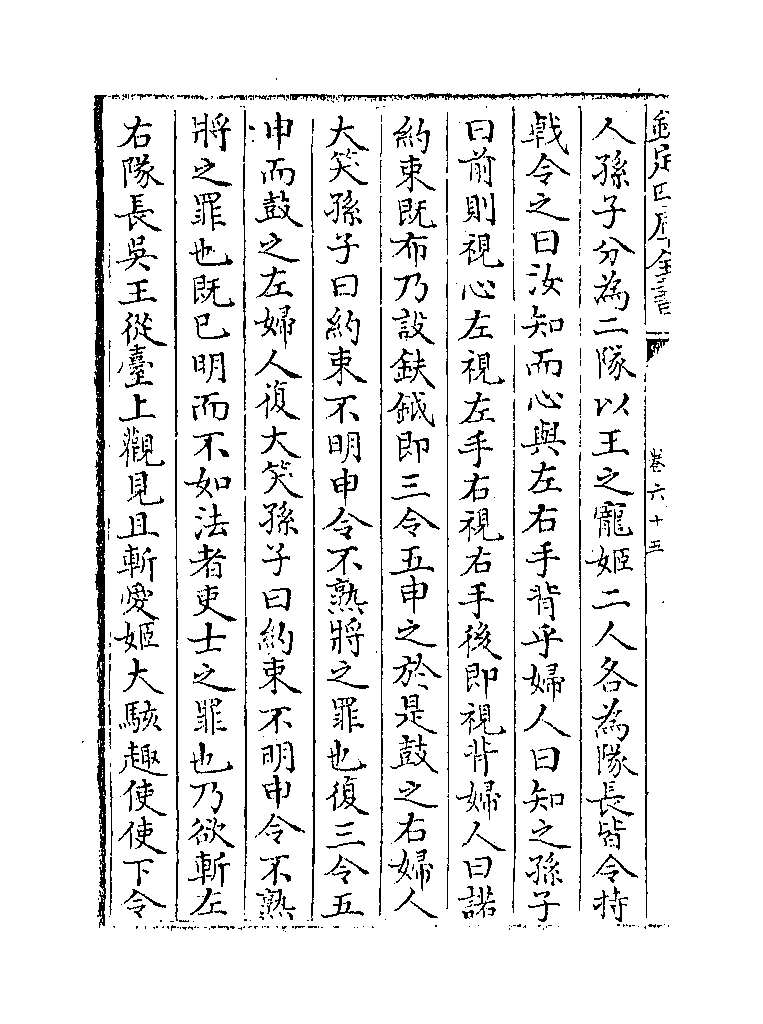 欽定四庫全書
卷六十五
人孫子分為二隊以王之寵姬二人各為隊長皆令持
戟令之曰汝知而心與左右手背乎婦人曰知之孫子
曰前則視心左視左手右視右手後即視背婦人曰諾
約束既布乃設鈇鉞即三令五申之於是鼓之右婦人
大笑孫子曰約束不明申令不熟將之罪也復三令五
申而鼓之左婦人復大笑孫子曰約束不明申令不熟
將之罪也既已明而不如法者吏士之罪也乃欲斬左
右隊長吳王從臺上觀見且斬愛姬大駭趣使使下令